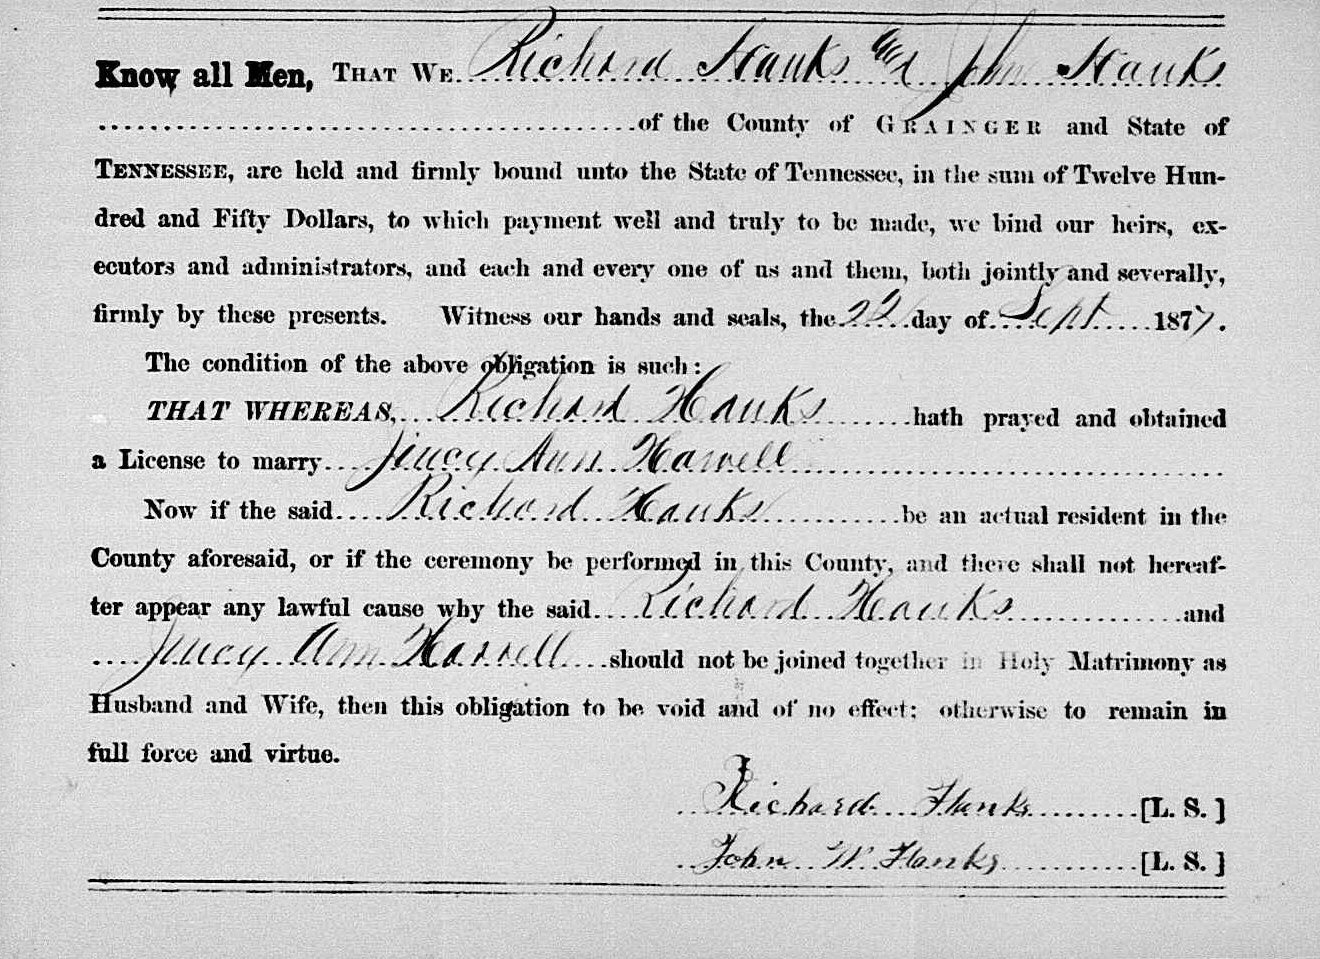 Know all Men, THAT WE Richard Hanks and John Hanks
of the County of GRAINGER and State of
TENNESSEE, are held and firmly bound unto the State of Tennessee, in the sum of Twelve Hun-
dred and Fifty Dollars, to which payment well and truly to be made, we bind our heirs, ex-
ecutors and administrators, and each and every one of us and them, both jointly and severally,
firmly by these presents. Witness our hands and seals, the 22 day of Sept 1877.
The condition of the above obligation is such:
THAT WHEREAS, Richard Hanks hath prayed and obtained
a License to marry Ann Harvell
Now if the said Richard Hanks be an actual resident in the
County aforesaid, or if the ceremony be performed in this County, and there shall not hereaf-
ter appear any lawful cause why the said Richard Hanks and
Ann Harvell should not be joined together in Holy Matrimony as
Husband and Wife, then this obligation to be void and of no effect; otherwise to remain in
full force and virtue.
Richard Hanks [L. S.]
John W Hanks [L. S.]